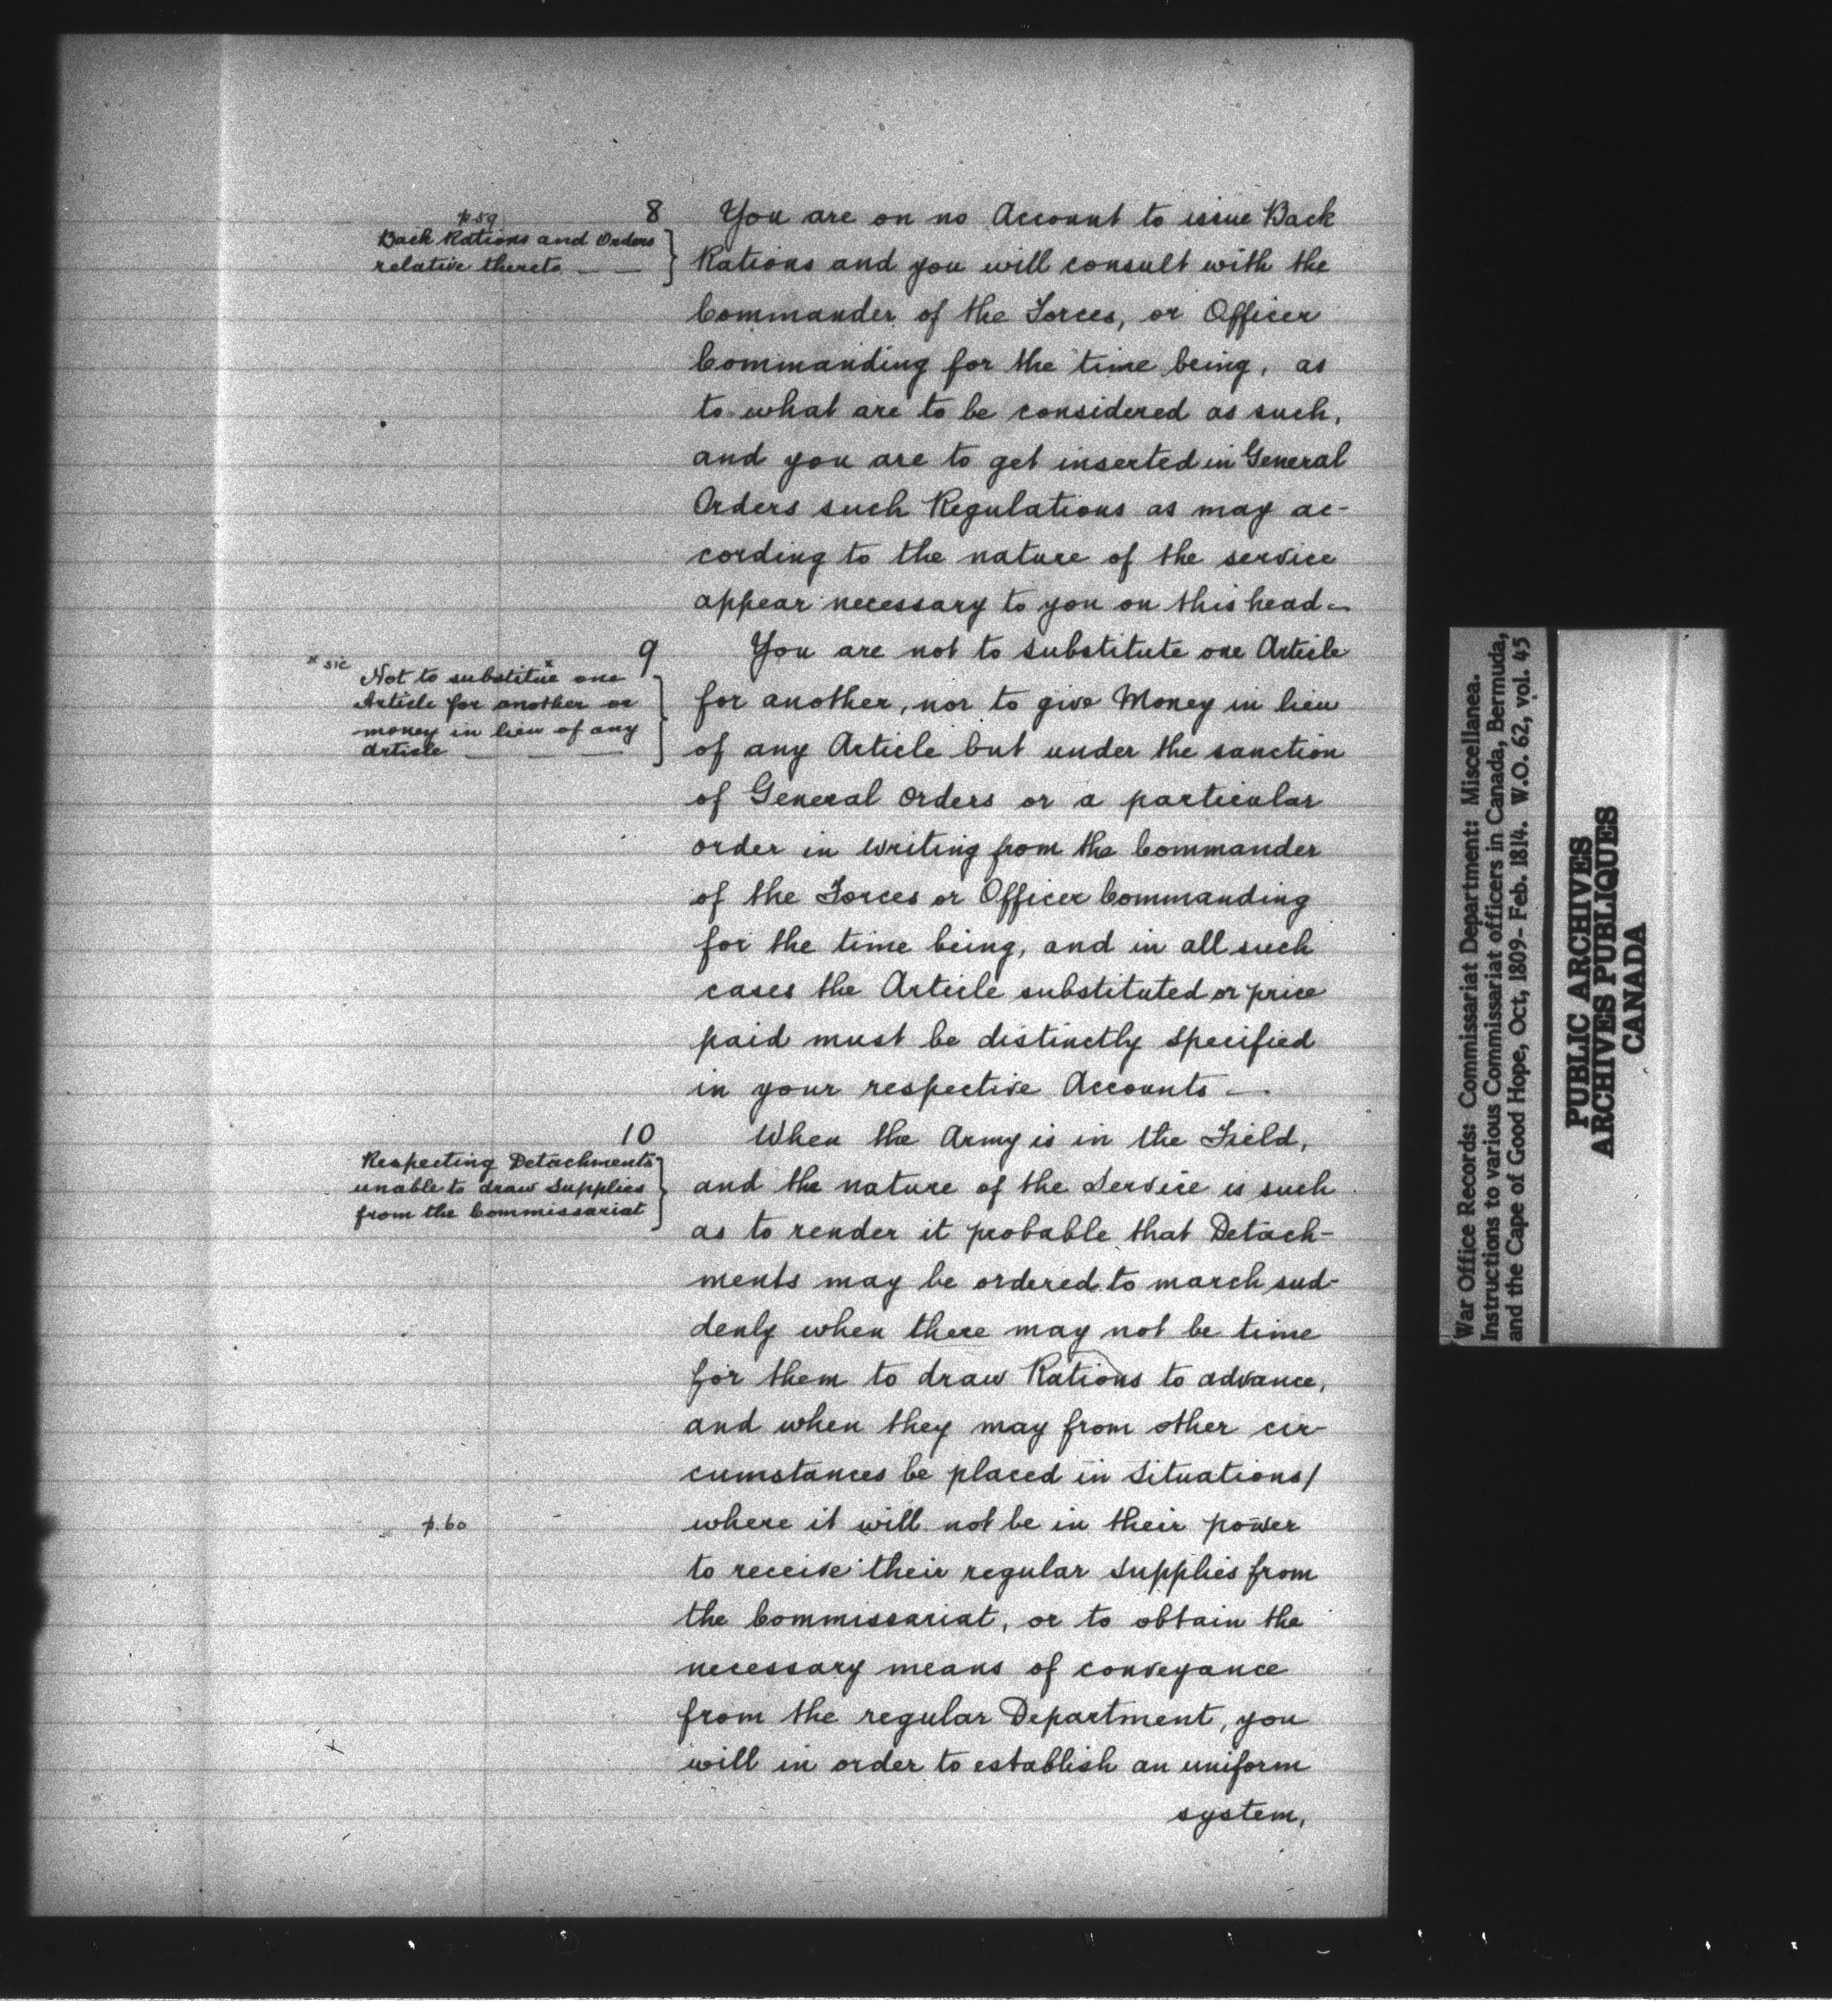 p 59
Back Rations and Orders
relative thereto — —
8 You are on no Account to issue Back
Rations and you will consult with the
Commander of the Forces, or Officer
Commanding for the time being, as
to what are to be considered as such,
and you are to get inserted in General
Orders such Regulations as may ac-
cording to the nature of the service
appear necessary to you on this head —
x sic
Not to substitue x one
Article for another or
money in lieu of any
article — — —
9 You are not to substitute one Article
for another, nor to give Money in lieu
of any Article but under the sanction
of General Orders or a particular
order in writing from the Commander
of the Forces or Officer Commanding
for the time being, and in all such
cases the Article substituted or price
paid must be distinctly specified
in your respective Accounts —.
Respecting Detachments
unable to draw Supplies
from the Commissariat
10 When the Army is in the Field,
and the nature of the Service is such
as to render it probable that Detach-
ments may be ordered to march sud-
denly when there may not be time
for them to draw Rations to advance,
and when they may from other cir-
cumstances be placed in Situations/
p. 60
where it will not be in their power
to receive their regular Supplies from
the Commissariat, or to obtain the
necessary means of conveyance
from the regular Department, you
will in order to establish an uniform
system,
x
War Office Records: Commissariat Department: Miscellanea.
Instructions to various Commissariat officers in Canada, Bermuda,
and the Cape of Good Hope, Oct, 1809- Feb. 1814. W.O. 62, vol. 45
PUBLIC ARCHIVES
ARCHIVES PUBLIQUES
CANADA